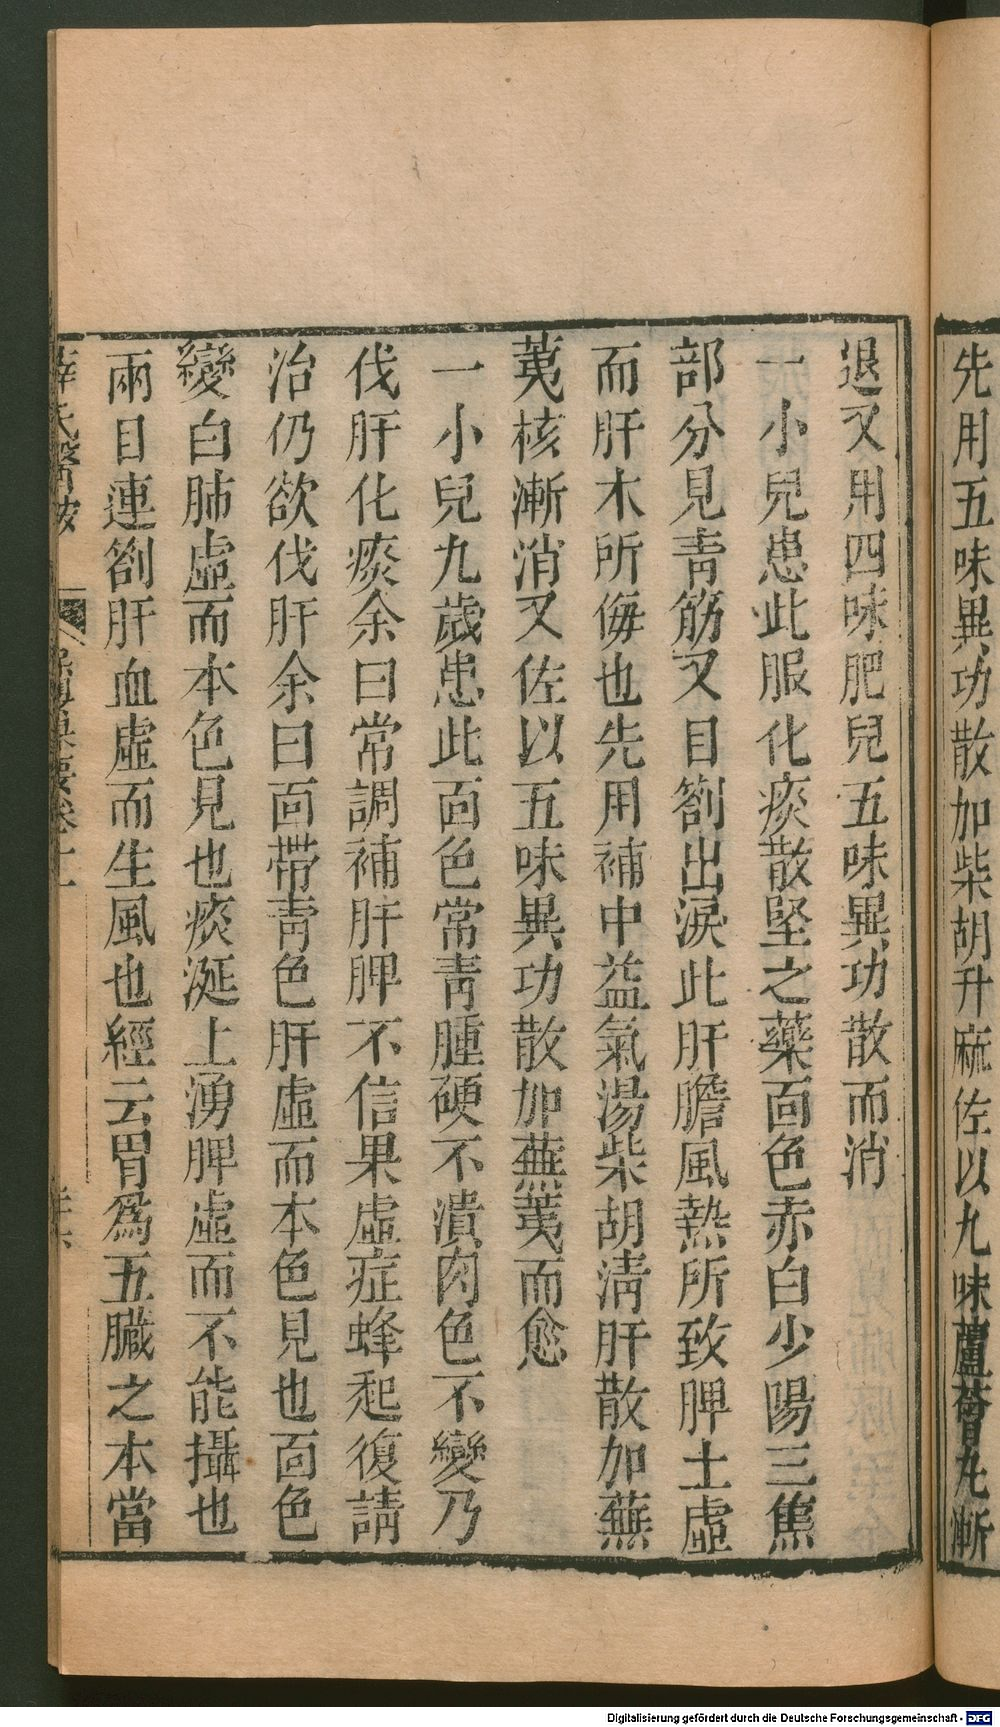 先用五味異功散加柴胡升麻佐以九味蘆薈丸漸
退又用四味肥兒五味異功散而消
一小兒患此服化痰散堅之藥面色赤白少陽三焦
部分見青筋又目劄出淚此肝膽風熱所致脾土虛
而肝木所侮也先用補中益氣湯柴胡清肝散加蕪
荑核漸消又佐以五味異功散加蕪荑而愈
一小兒九歲患此面色常青腫硬不潰肉色不變乃
伐肝化痰余曰常調補肝脾不信果虛症蜂起復請
治仍欲伐肝余曰面帶青色肝虛而本色見也面色
變白肺虛而本色見也痰涎上湧脾虛而不能攝也
兩目連劄肝血虛而生風也經云胃為五臟之本當
薛氏醫按
Digitalisierung gefördert durch die Deutsche Forschungsgemeinschaft - DFG